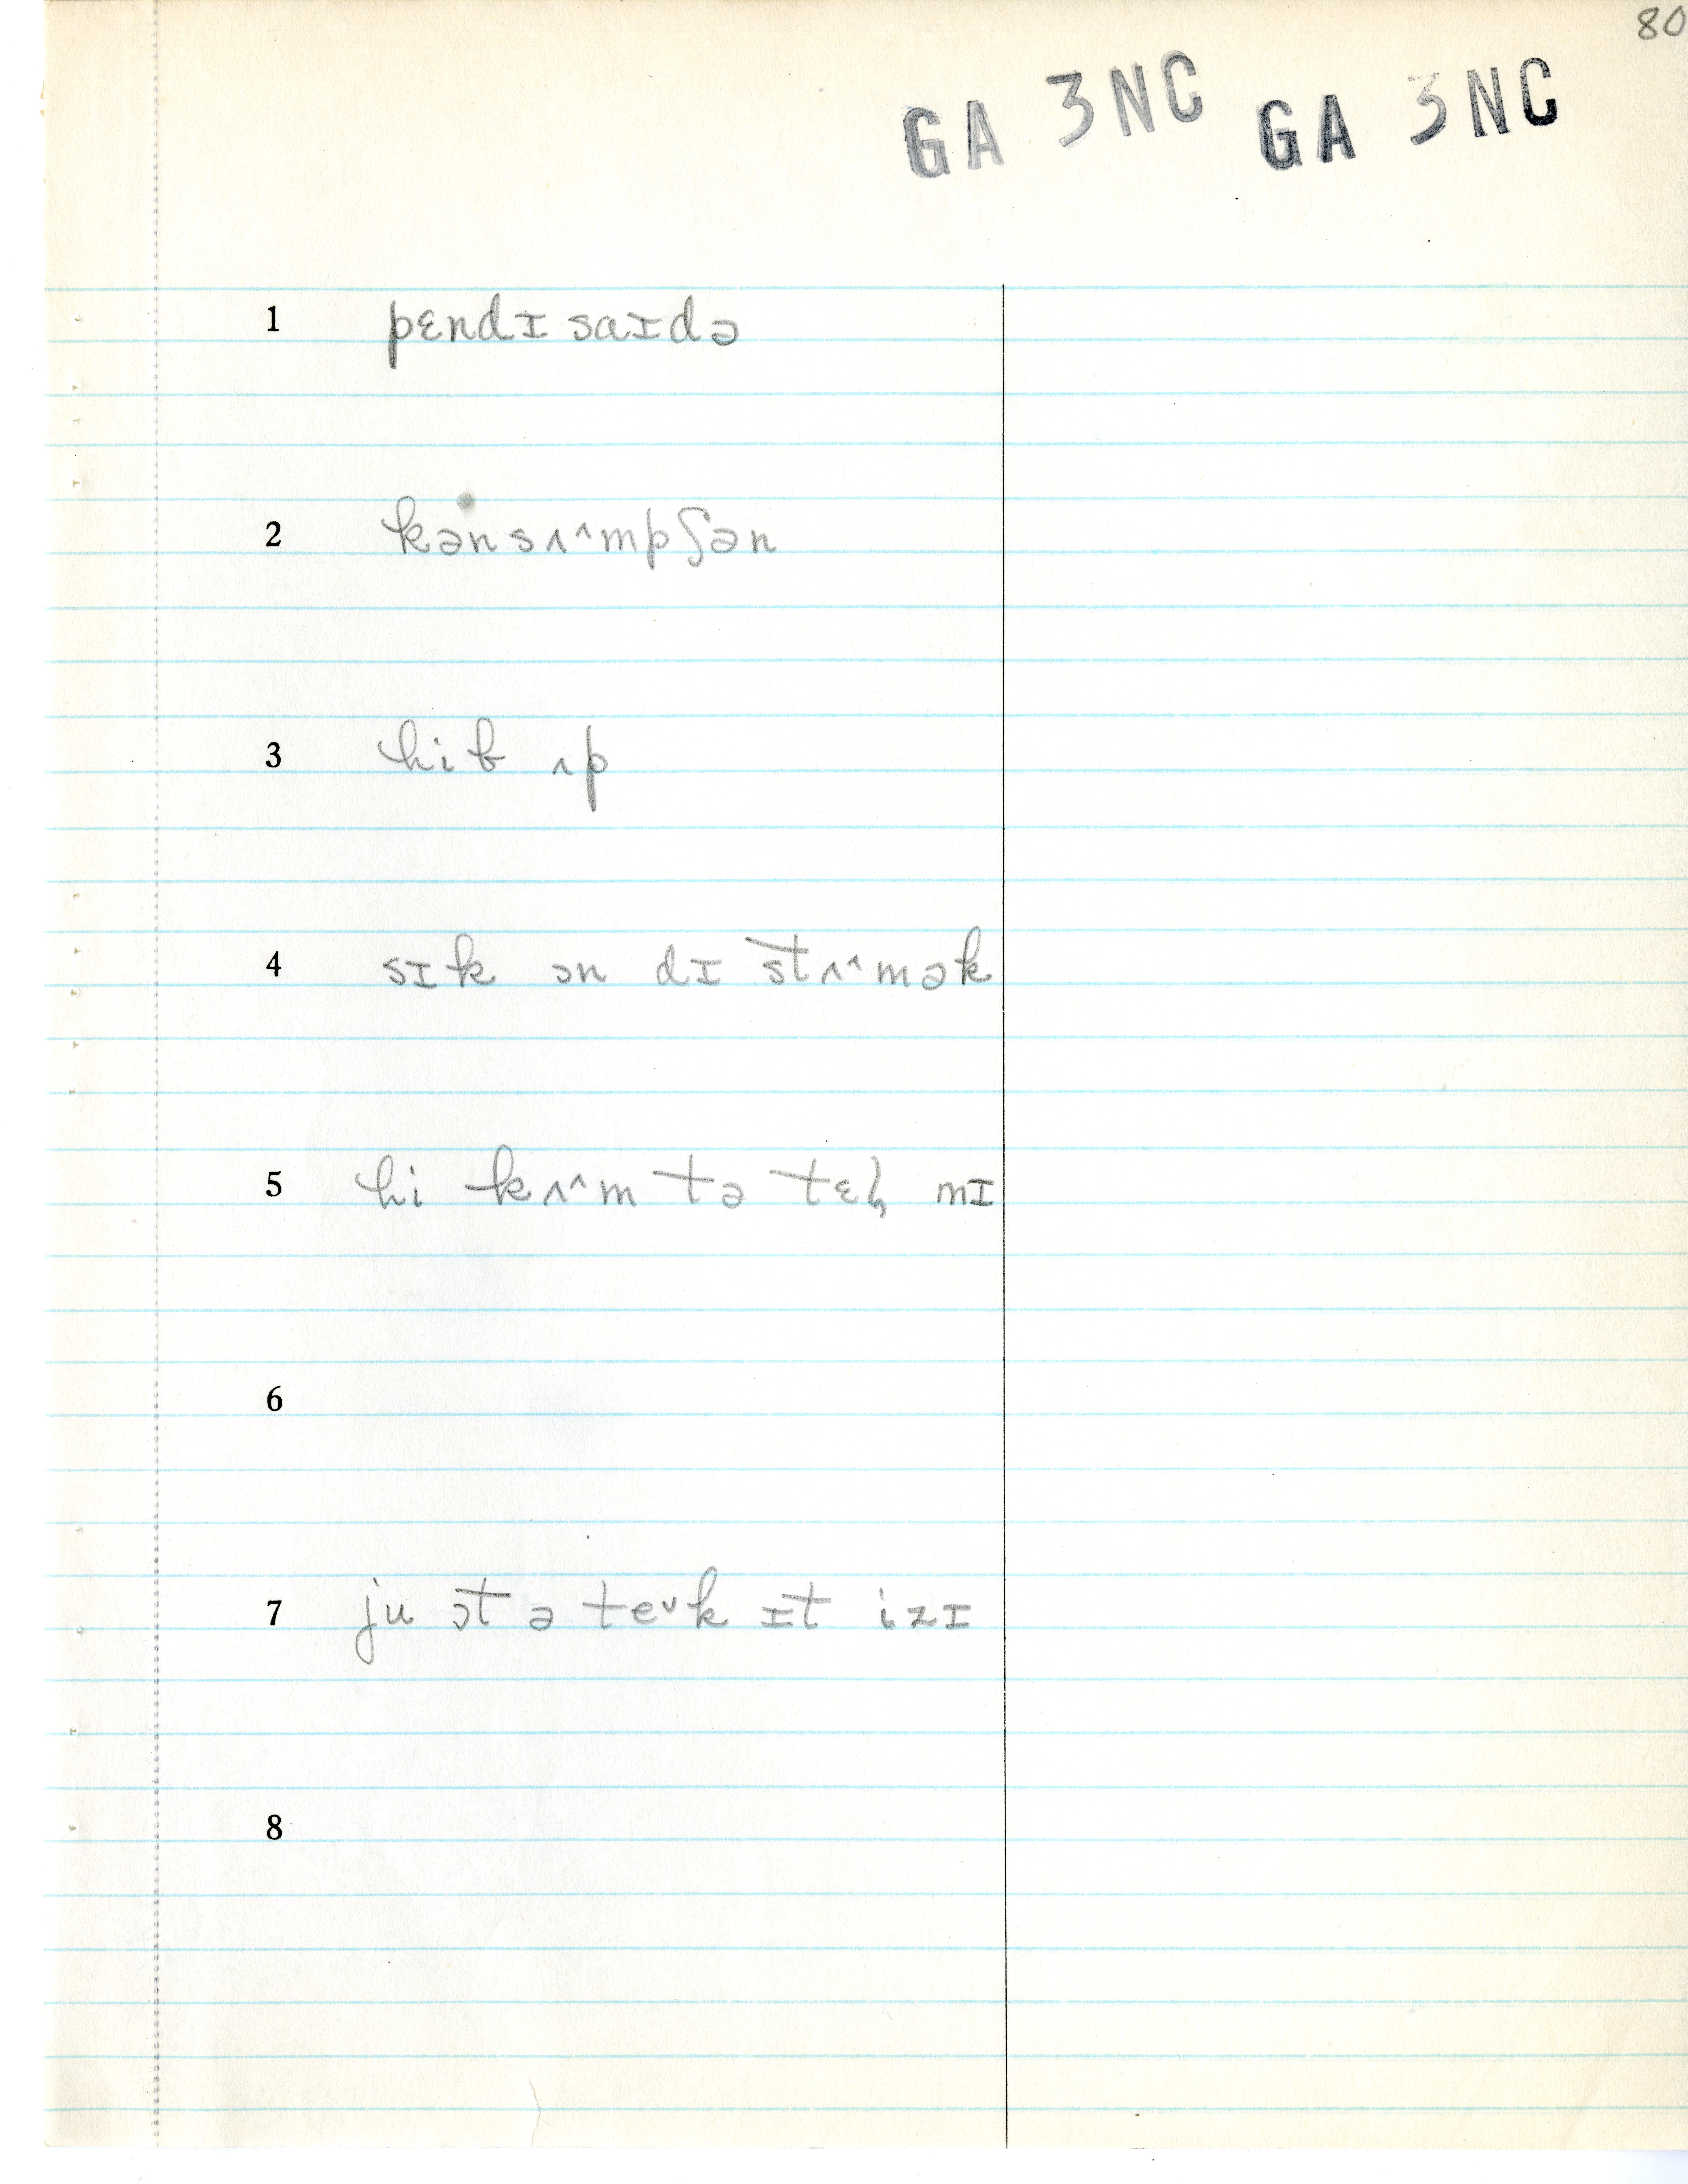 80
GA 3NC GA 3NC
1 pɛndɪsaɪdə
2 kənsʌ^mpʃən
3 hib ʌp
4 sɪk ɔn dɪ stʌ^mək
5 hi kʌ^m tə tɛl̥ mɪ
6
7 ju ɔt ə teᵛk ɪt izɪ
8